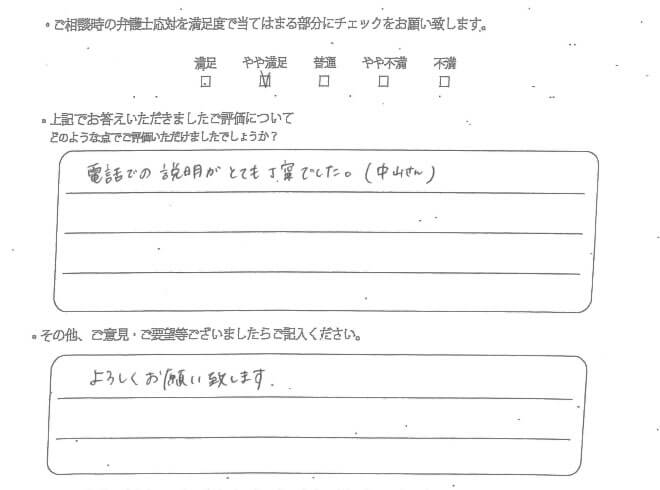 ・ご相談時の弁護士応対を満足度で当てはまる部分にチェックをお願い致します。
満足 やや満足 普通 やや不満 不満
□ ☑ □ □ □
・上記でお答えいただきましたご評価について
どのような点でご評価いただけましたでしょうか？
電話での説明がとても丁寧でした。(中山さん)
・その他、ご意見・ご要望等ございましたらご記入ください。
よろしくお願い致します.